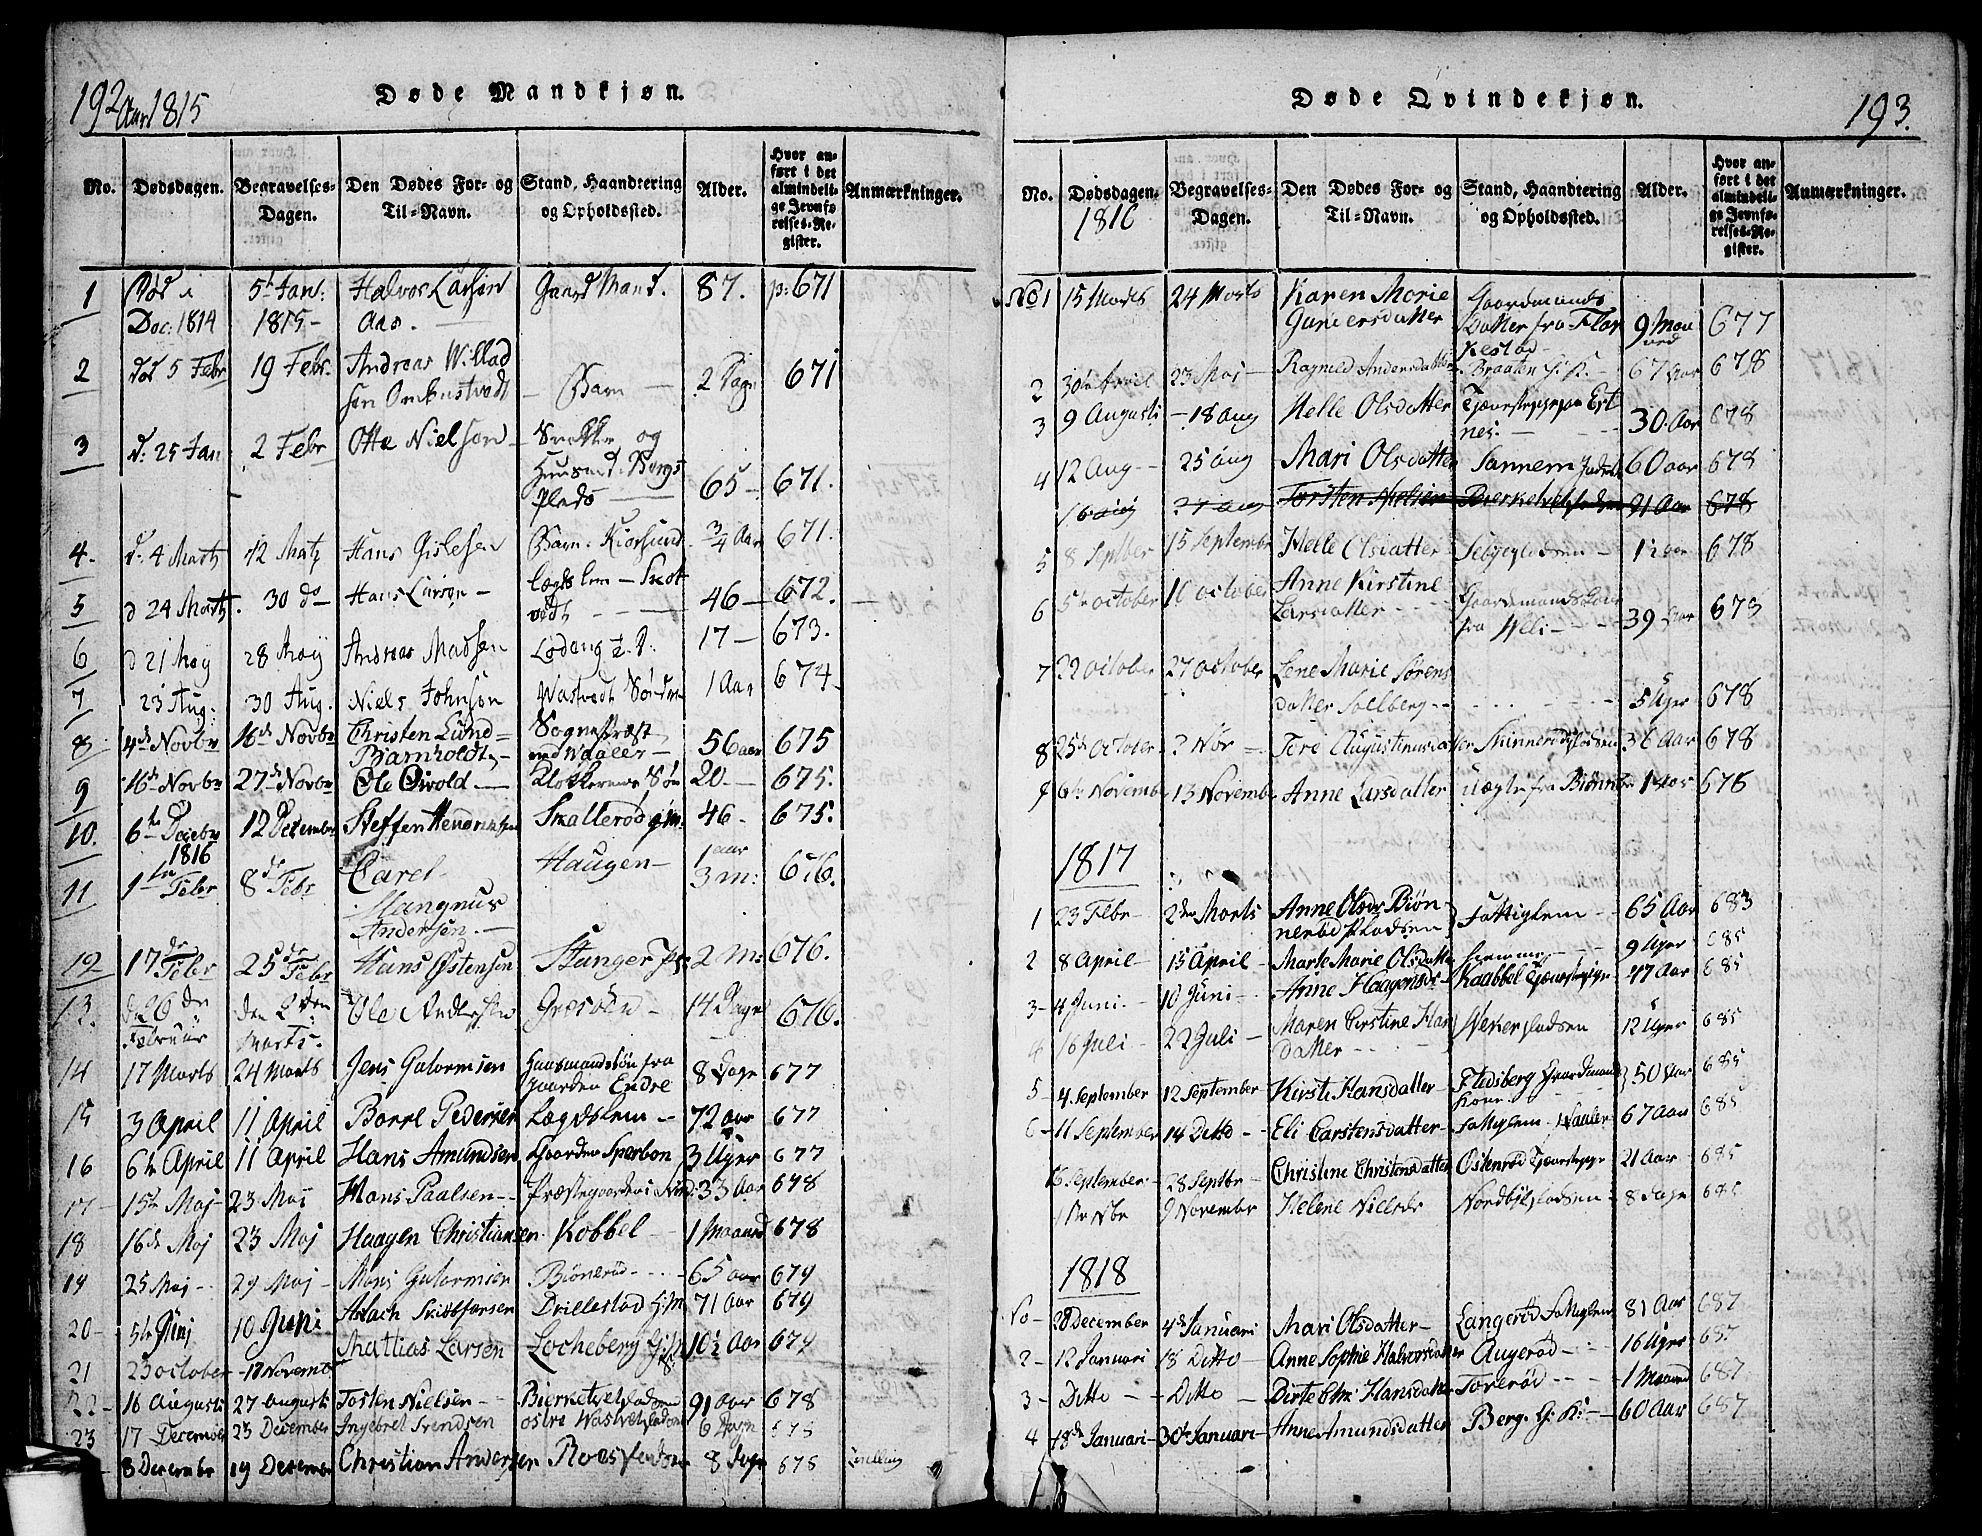 192 Aar 1815
Døde Mandkjøn.
No. Dødsdagen. Begravelses-Dagen. Den Dødes For- og Til-Navn. Stand, Haandtering og Opholdssted. Alder. Hvor anført i det almindelige Jevnførelses-Register. Anmærkninger.
1 Død i Dec: 1814 5t Jan: 1815 - Halvor Larsen Aas. Gaard Mand. 87. p: 671
2 død 5 Febr 19 Febr. Andreas Willad sen Barn 2 Dage 671
3 d: 25 Jan 2 Febr Otte Nielsen Snekker og Huusmd. Borgs Plads 65 - 671.
4. d. 4 Martz 12 Matz Hans Gislesen Barn. Kiorsund 3/4 Aar 671.
5 d 24 Martz. 30 do Hans Larsen - Lægdslem - Skot vedt 46 - 672.
6 d 21 May 28 May Andreas Madsen 17 - 673.
7 23 Aug: 30 Aug. Niels Johnsen Wastvedt 1 Aar 674
8 4de Novbr 16de Novbr Christen Lund = Bjarnholdt Sognepræst ved Waaler - 56 aar 675
9 16de Novbr 27de Novbr Ole Qivold Klokkerens Søn 20 - 675.
10. 6te Decebr 12 Decembr Steffen Hendriksen Skallerød 46 - 675.
1816
11 1ste Febr 8de Febr Carel Mangnus Andersen. Haugen - 1 aar 3 m: 676.
12 17de Febr 25de Febr Hans Østensen Stanger 2 M: 676.
13. d. 26den Februar den 2den Marts. Ole Andersen 14 Dage 676.
14 17 Marts 24 Marts Jens Gulormsen Huusmandssøn fra gaarden Endre 8 Dage 677
15 3 April 11 April Borre Pedersen Lægdslem - 72 aar 677
16 6te April 11 April Hans Amundsen Gaarden Sperbon 3 Uger 677
17 15te Maj 23 Maj Hans Paalsen - Præstegaarden 33 Aar 678
18 16de Maj 23 Maj Haagen Christiansen Kobbel 1 Maaned 678
19 25 Maj 29 Maj - Mons Gulormsen Biønerød 65 aar 679
20 - 5te Junj 10 Juni Aslach Drillestad 71 Aar 679
21 23 October 17 Novembr Mathias Larsen Locheberg 10½ Aar 679
22 - 16 Augusti 27 Augusti Tosten Nielsen - 91 aar 678
23 17 December 25 December Ingebret Svendsen østre 6 Dage 678
8 Decembr 19 Decembr Christian Andersen 8 Dage 678
Døde Qvindekjøn.
193.
No. Dødsdagen. Begravelses-Dagen. Den Dødes For- og Til-Navn. Stand, Haandtering og Opholdssted. Alder. Hvor anført i det almindelige Jevnførelses-Register. Anmærkninger.
1816
No 1 15 Marts 24 Marts Karen Marie Gunersdatter Gaardmands Datter fra Flak kestad - 9 Maaned 677
2 30te April 23 Maj - Ragnild Andersdatter Braaten 67 Aar 678
3 9 Augusti - 18 Aug Helle Olsdatter Tjenestepige Ert nes. 30 Aar 678
4 12 Aug - 25 Aug Mari Olsdatter Sannem 60 aar 678
16 Aug 27 Aug Torsten Nielsen 91 Aar 678
5 8 Septber 15 Septembr Helle Olsdatter 678
6 5te October 16 October Anne Kirstine Larsdatter Gaardmands Kone fra Weli - 39 Aar 678
7 22 October 27 October Lene Marie Sørens datter Solberg - 5 Uger 678
8 25de October - 3 Nov - Tere Augustinusdatter 36 Aar 678
9 6te Novembr 13 Novembr Anne Larsdatter uægte fra Biønneb 1 Aar 678
1817
1 23 Febr 2den Marts Anne Olsdr Biøn nerbd pladsen Fattiglem - 65 Aar 683
2 8 April - 15 April - Marte Marie Olsdatter 9 Uger 685
3 - 4 Juni - 10 Juni - Anne Haagensdr Kaabbel Tjenestepige 47 Aar 685
4 16 Juli - 22 Juli - Maren Cirstine Han datter 12 Uger 685
5 - 4 September 12 September Kirsti Hansdatter Gaardmands Kone 50 Aar 685
6 - 11 September 14 Ditto - Eli Carstensdatter - Fattiglem - Waaler 67 Aar 685
16 September - 28 Septbr - Christine Christensdatter Ostenrød Tjenestepige 21 Aar 685
1ste Nvbr 9 November Helene Nielsdr 8 Dage 685
1818
No - 28 December 4de Januari Mari Olsdatter - Langerød Fattiglem 81 Aar 687
2 - 12 Januari 18 Ditto - Anne Sophie Halvorsdatter Augerød 16 Uger 687
3 - Ditto - Ditto - Hansdatter Torerød 1 Maaned 687
4 18de Januari - 30te Januari - Anne Amundsdatter Berg. 60 Aar 687